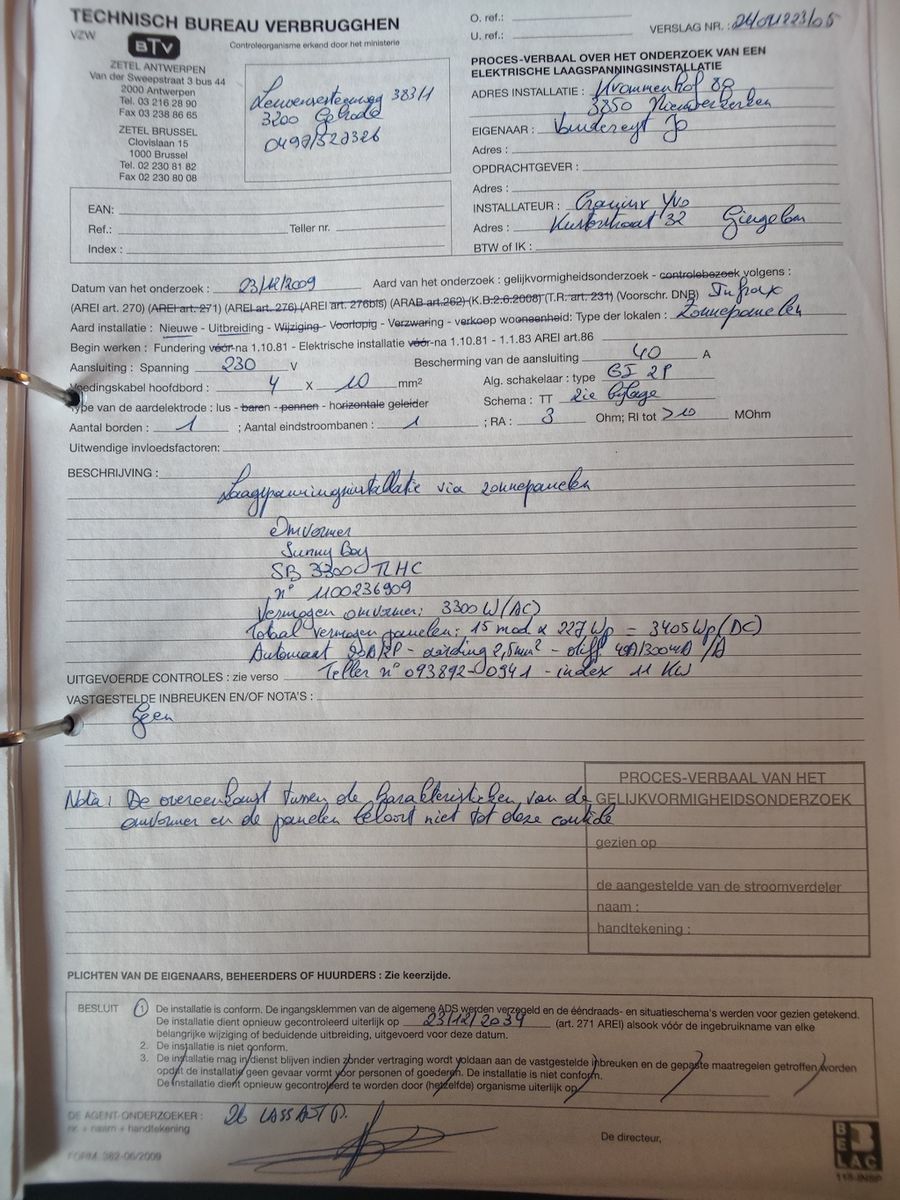 TECHNISCH BUREAU VERBRUGGHEN
VZW
BTV
Controleorganisme erkend door het ministerie
ZETEL ANTWERPEN
Van der Sweepstraat 3 bus 44
2000 Antwerpen
Tel. 03 216 28 90
Fax 03 238 86 65
ZETEL BRUSSEL
Clovislaan 15
1000 Brussel
Tel. 02 230 81 82
Fax 02 230 80 08
Leuvensesteenweg 383/1
3200 Gelrode
0497/527326
O. ref.:
U. ref.:
VERSLAG NR. : 26/091223/05
PROCES-VERBAAL OVER HET ONDERZOEK VAN EEN
ELEKTRISCHE LAAGSPANNINGSINSTALLATIE
ADRES INSTALLATIE : Krommenhof 8
3850 Nieuwerkerken
EIGENAAR : Vandereyt Jo
Adres :
OPDRACHTGEVER :
Adres :
INSTALLATEUR : Yvo
Adres : 32 Gingelom
BTW of IK :
EAN:
Ref.: Teller nr.
Index :
Datum van het onderzoek : 23/12/2009 Aard van het onderzoek : gelijkvormigheidsonderzoek - controlebezoek volgens :
(AREI art. 270) (AREI art. 271) (AREI art. 276) (AREI art. 276bis) (ARAB art.262) (K.B.2.6.2008) (T.R. art. 231) (Voorschr. DNB) Infrax
Aard installatie : Nieuwe - Uitbreiding - Wijziging - Voorlopig - Verzwaring - verkoep wooneenheid: Type der lokalen : Zonnepanelen
Begin werken : Fundering vóór-na 1.10.81 - Elektrische installatie vóór-na 1.10.81 - 1.1.83 AREI art.86
Aansluiting : Spanning 230 V Bescherming van de aansluiting 40 A
Voedingskabel hoofdbord : 4 X 10 mm² Alg. schakelaar : type 2P
Type van de aardelektrode : lus - baren - pennen - horizontale geleider Schema : TT zie bijlage
Aantal borden : 1 ; Aantal eindstroombanen : 1 ; RA : 3 Ohm; RI tot >10 MOhm
Uitwendige invloedsfactoren:
BESCHRIJVING :
Laagspanningsinstallatie via zonnepanelen
Omvormer
Sunny Boy
SB 3300 TLHC
n° 1100236909
Vermogen omvormer: 3300 W (AC)
Totaal vermogen panelen: 15 mod x 227 Wp = 3405 Wp (DC)
Automaat 20A/2P - aarding 2,5mm² - diff. 40A/300mA /A
UITGEVOERDE CONTROLES : zie verso Teller n° 093892-0941 - index 11 KW
VASTGESTELDE INBREUKEN EN/OF NOTA'S :
Geen
Nota: De overeenkomst tussen de karakteristieken van de
omvormer en de panelen behoort niet tot deze controle
PROCES-VERBAAL VAN HET
GELIJKVORMIGHEIDSONDERZOEK
gezien op
de aangestelde van de stroomverdeler
naam :
handtekening :
PLICHTEN VAN DE EIGENAARS, BEHEERDERS OF HUURDERS : Zie keerzijde.
BESLUIT 1 De installatie is conform. De ingangsklemmen van de algemene ADS werden verzegeld en de ééndraads- en situatieschema's werden voor gezien getekend.
De installatie dient opnieuw gecontroleerd uiterlijk op 23/12/2034 (art. 271 AREI) alsook vóór de ingebruikname van elke
belangrijke wijziging of beduidende uitbreiding, uitgevoerd voor deze datum.
2. De installatie is niet conform.
3. De installatie mag in dienst blijven indien zonder vertraging wordt voldaan aan de vastgestelde inbreuken en de gepaste maatregelen getroffen worden
opdat de installatie geen gevaar vormt voor personen of goederen. De installatie is niet conform.
De installatie dient opnieuw gecontroleerd te worden door (hetzelfde) organisme uiterlijk op
DE AGENT-ONDERZOEKER : 26
nr. + naam + handtekening
De directeur,
FORM. 382-06/2009
BELAC
118-INSP